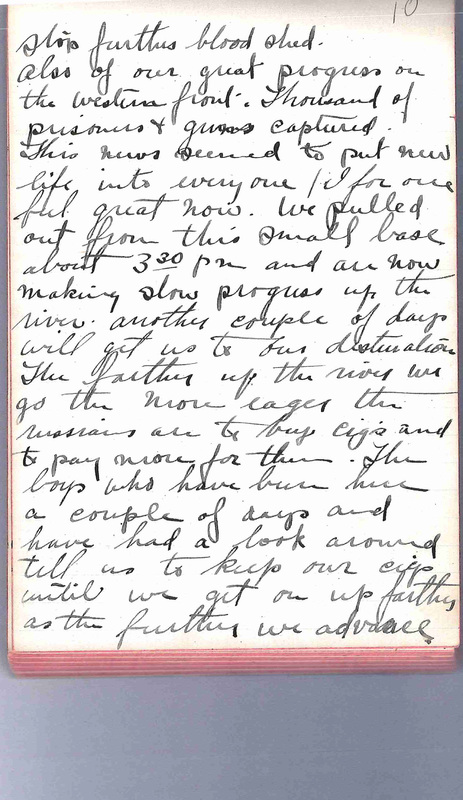 10
stop further blood shed.
also of our great progress on
the western front. Thousand of
prisoners & guns captured.
This news seemed to put new
life into everyone / I for one
feel great now. We pulled
out from this small base
about 3 30 pm and are now
making slow progress up the
river. another couple of days
will get us to our destination
The farther up the river we
go the more eager the
russians are to buy cigs and
to pay more for them. The
boys who have been here
a couple of days and
have had a look around
tell us to keep our cigs
until we get on up farther
as the further we advance